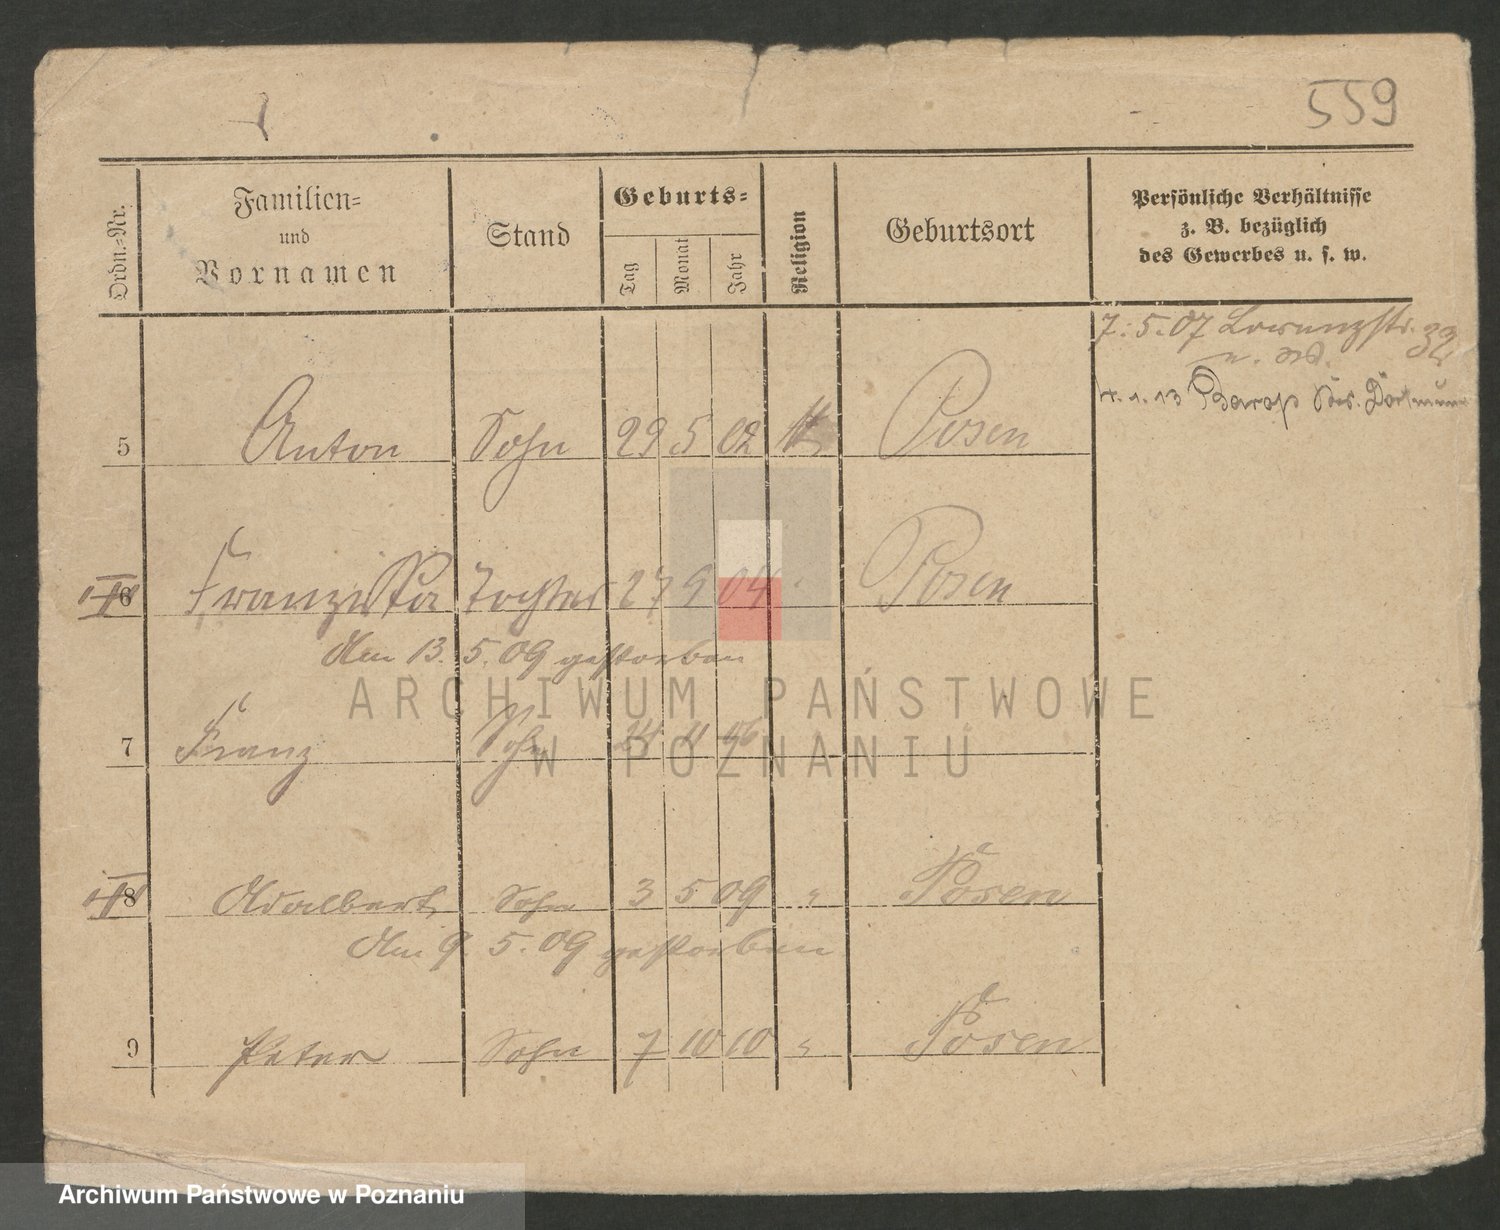 559
Ordn.=Nr.
Familien=
und
Vornamen
Stand
Geburts=
Tag
Monat
Jahr
Religion
Geburtsort
Persönliche Verhältnisse
z. B. bezüglich
des Gewerbes u. s. w.
7. 5. 07 Lorenzstr. 32
4. 1. 13 Barop
5 Anton Sohn 29 5 02 Posen
6 Franziska Tochter 27 9 04 Posen
Am 13. 5. 09 gestorben
7 Franz Sohn
8 Adalbert Sohn 3 5 09 " Posen
Am 9. 5. 09 gestorben
9 Peter Sohn 7 10 10 " Posen
ARCHIWUM PAŃSTWOWE
W POZNANIU
Archiwum Państwowe w Poznaniu